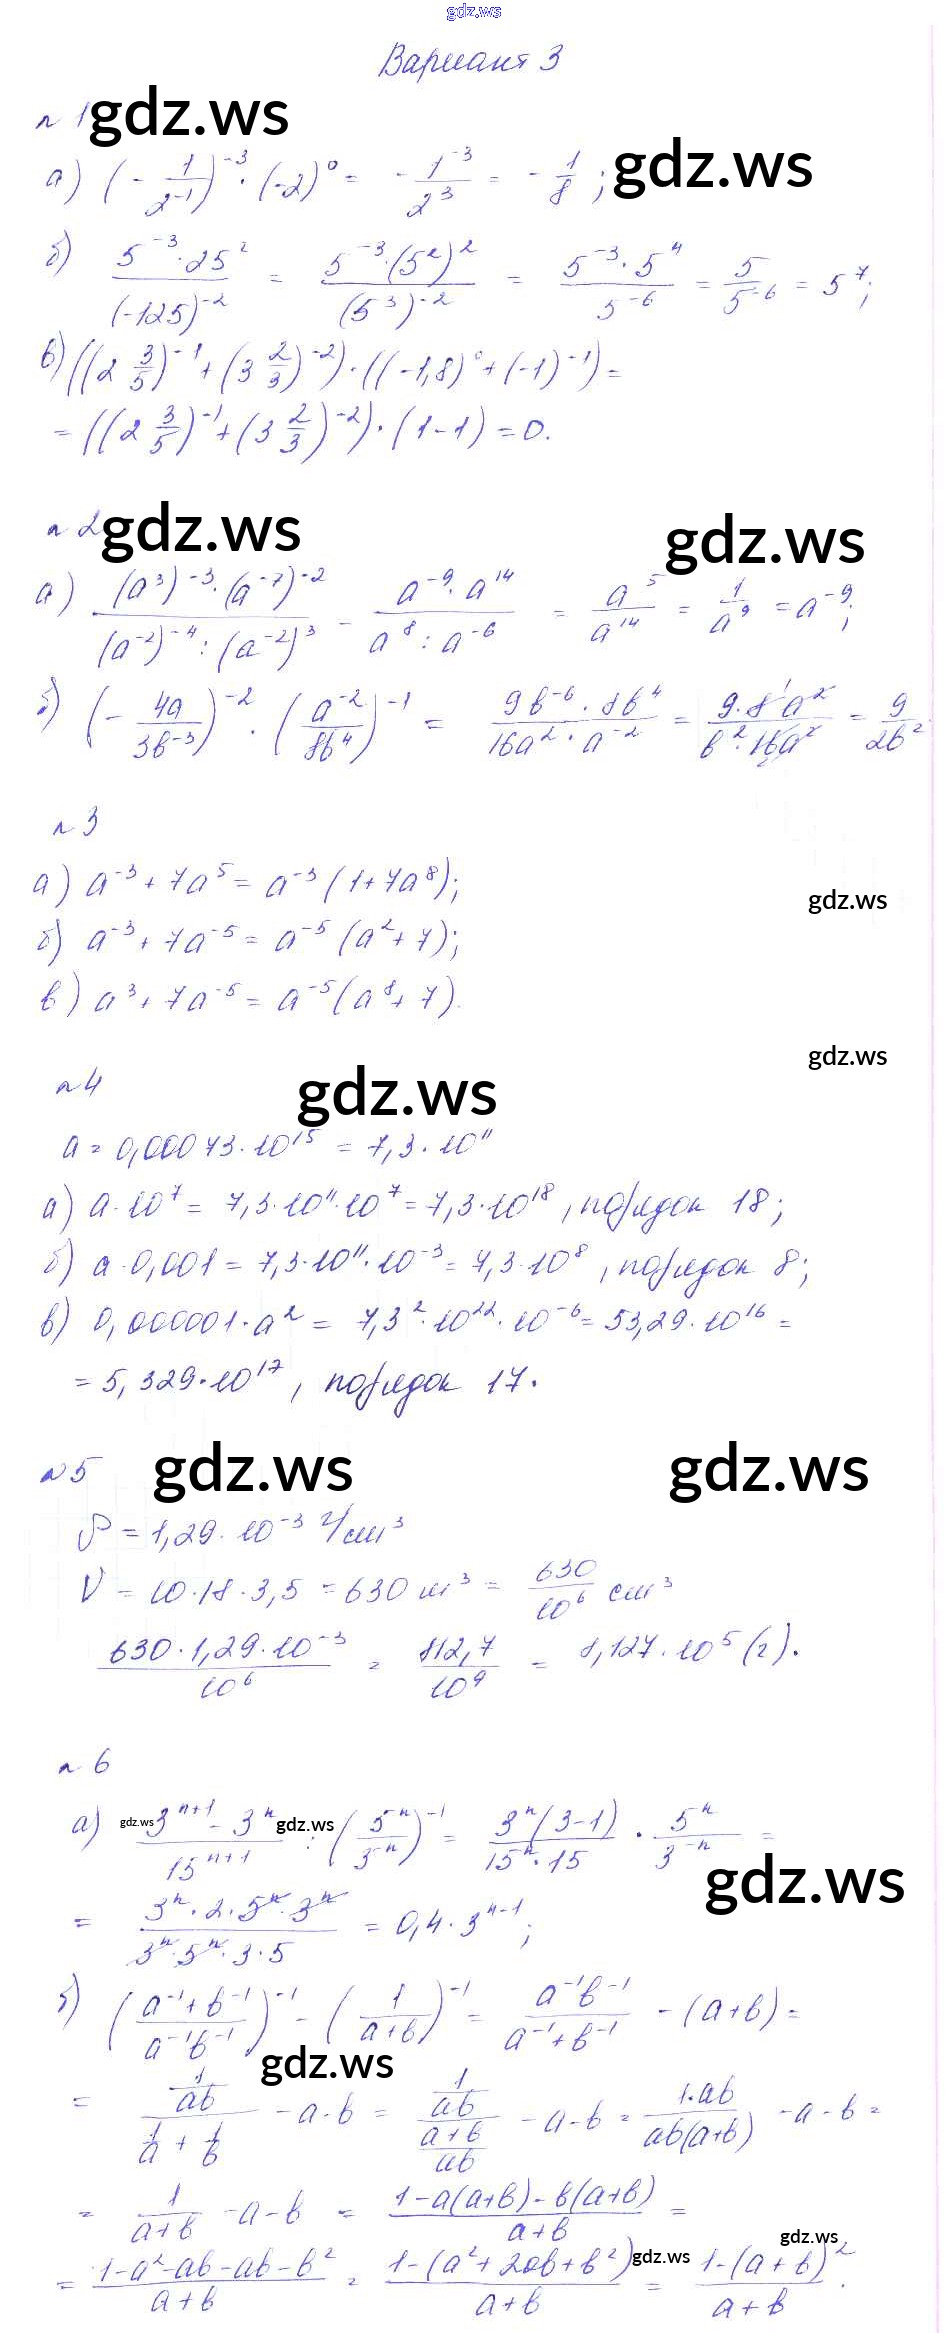 gdz.ws
Вариант 3
№ 1 gdz.ws
а) (- 1/2⁻¹)⁻³ · (-2)⁰ = - 1⁻³/2³ = - 1/8 ; gdz.ws
б) 5⁻³·25²/(-125)⁻² = 5⁻³·(5²)²/(5³)⁻² = 5⁻³·5⁴/5⁻⁶ = 5/5⁻⁶ = 5⁷;
в) ((2 3/5)⁻¹ + (3 2/3)⁻²) · ((-1,8)⁰ + (-1)⁻¹) =
= ((2 3/5)⁻¹ + (3 2/3)⁻²) · (1-1) = 0.
№ 2 gdz.ws gdz.ws
а) (a³)⁻³·(a⁻⁷)⁻²/(a⁻²)⁻⁴:(a⁻²)³ = a⁻⁹·a¹⁴/a⁸:a⁻⁶ = a⁵/a¹⁴ = 1/a⁹ = a⁻⁹;
б) (- 4a/3b⁻³)⁻² · (a⁻²/8b⁴)⁻¹ = 9b⁻⁶·8b⁴/16a²·a⁻² = 9·8a²/b²·16a² = 9/2b²
№ 3
а) a⁻³ + 7a⁵ = a⁻³(1+7a⁸);
gdz.ws
б) a⁻³ + 7a⁻⁵ = a⁻⁵(a²+7);
в) a³ + 7a⁻⁵ = a⁻⁵(a⁸+7).
gdz.ws
№ 4 gdz.ws
a = 0,00073·10¹⁵ = 7,3·10¹¹
а) a·10⁷ = 7,3·10¹¹·10⁷ = 7,3·10¹⁸, порядок 18;
б) a·0,001 = 7,3·10¹¹·10⁻³ = 7,3·10⁸, порядок 8;
в) 0,000001·a² = 7,3²·10²²·10⁻⁶ = 53,29·10¹⁶ =
= 5,329·10¹⁷, порядок 17.
№ 5 gdz.ws gdz.ws
ρ = 1,29·10⁻³ г/см³
V = 10·18·3,5 = 630 м³ = 630/10⁶ см³
630·1,29·10⁻³/10⁶ = 812,7/10⁹ = 8,127·10⁵ (г).
№ 6
а) gdz.ws 3ⁿ⁺¹ - 3ⁿ/15ⁿ⁺¹ gdz.ws : (5⁻ⁿ/3⁻ⁿ)⁻¹ = 3ⁿ(3-1)/15ⁿ·15 · 5ⁿ/3⁻ⁿ =
gdz.ws
= 3ⁿ·2·5ⁿ·3ⁿ/3ⁿ·5ⁿ·3·5 = 0,4·3ⁿ⁻¹;
б) (a⁻¹+b⁻¹/a⁻¹b⁻¹)⁻¹ - (1/a+b)⁻¹ = a⁻¹b⁻¹/a⁻¹+b⁻¹ - (a+b) =
gdz.ws
= 1/ab / 1/a + 1/b - a - b = 1/ab / a+b/ab - a - b = 1·ab/ab(a+b) - a - b =
= 1/a+b - a - b = 1-a(a+b)-b(a+b)/a+b =
gdz.ws gdz.ws
= 1-a²-ab-ab-b²/a+b = 1-(a²+2ab+b²)/a+b = 1-(a+b)²/a+b.